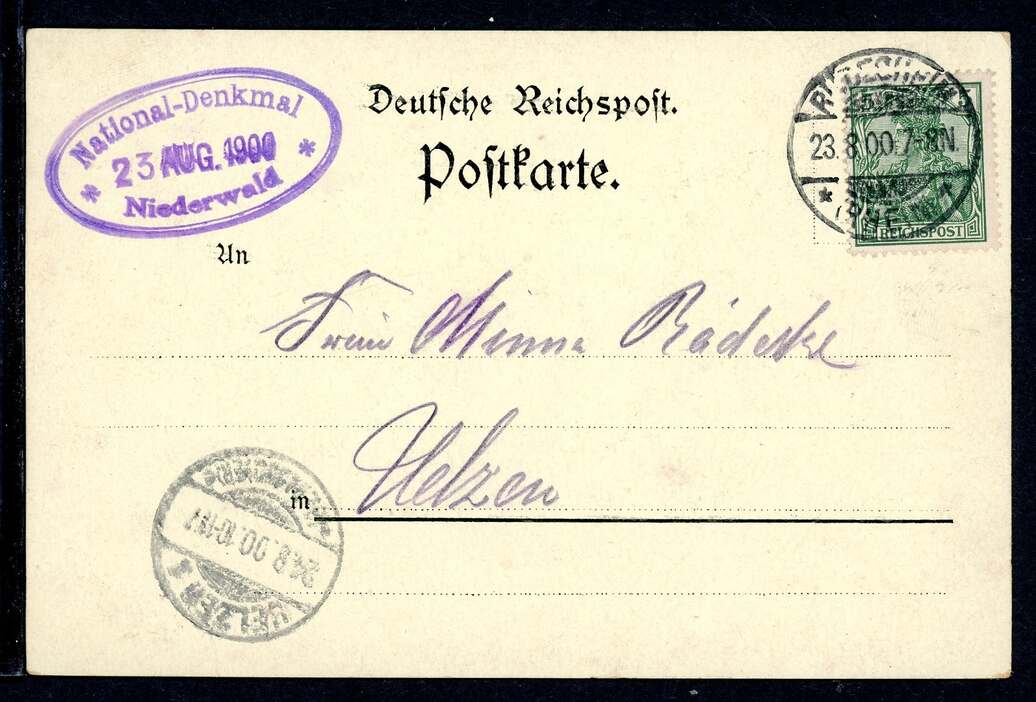 National-Denkmal
23 AUG. 1900
Niederwald
Deutsche Reichspost.
Postkarte.
RÜDESHEIM
23.8.00.7-8N.
REICHSPOST
An
Frau Minna Rädecke
in Uelzen
24.8.00.10-11V
UELZEN 1